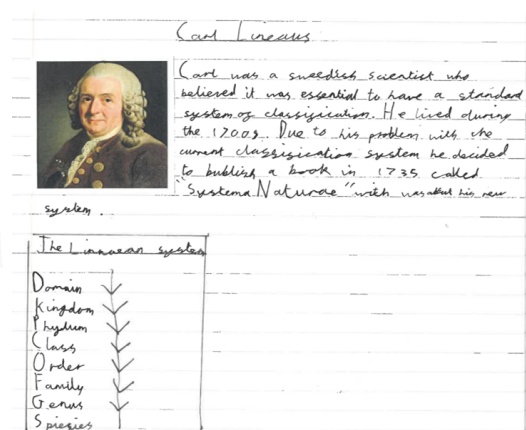 Carl Lineaus
Carl was a sweedish scientist who
believed it was essential to have a standard
system of classification. He lived during
the 1700s. Due to his problem with the
current classification system he decided
to bublish a book in 1735 called
"Systema Naturae" with was about his new
system.
The Linnaean system
Domain
Kingdom
Phylum
Class
Order
Family
Genus
Spiecies